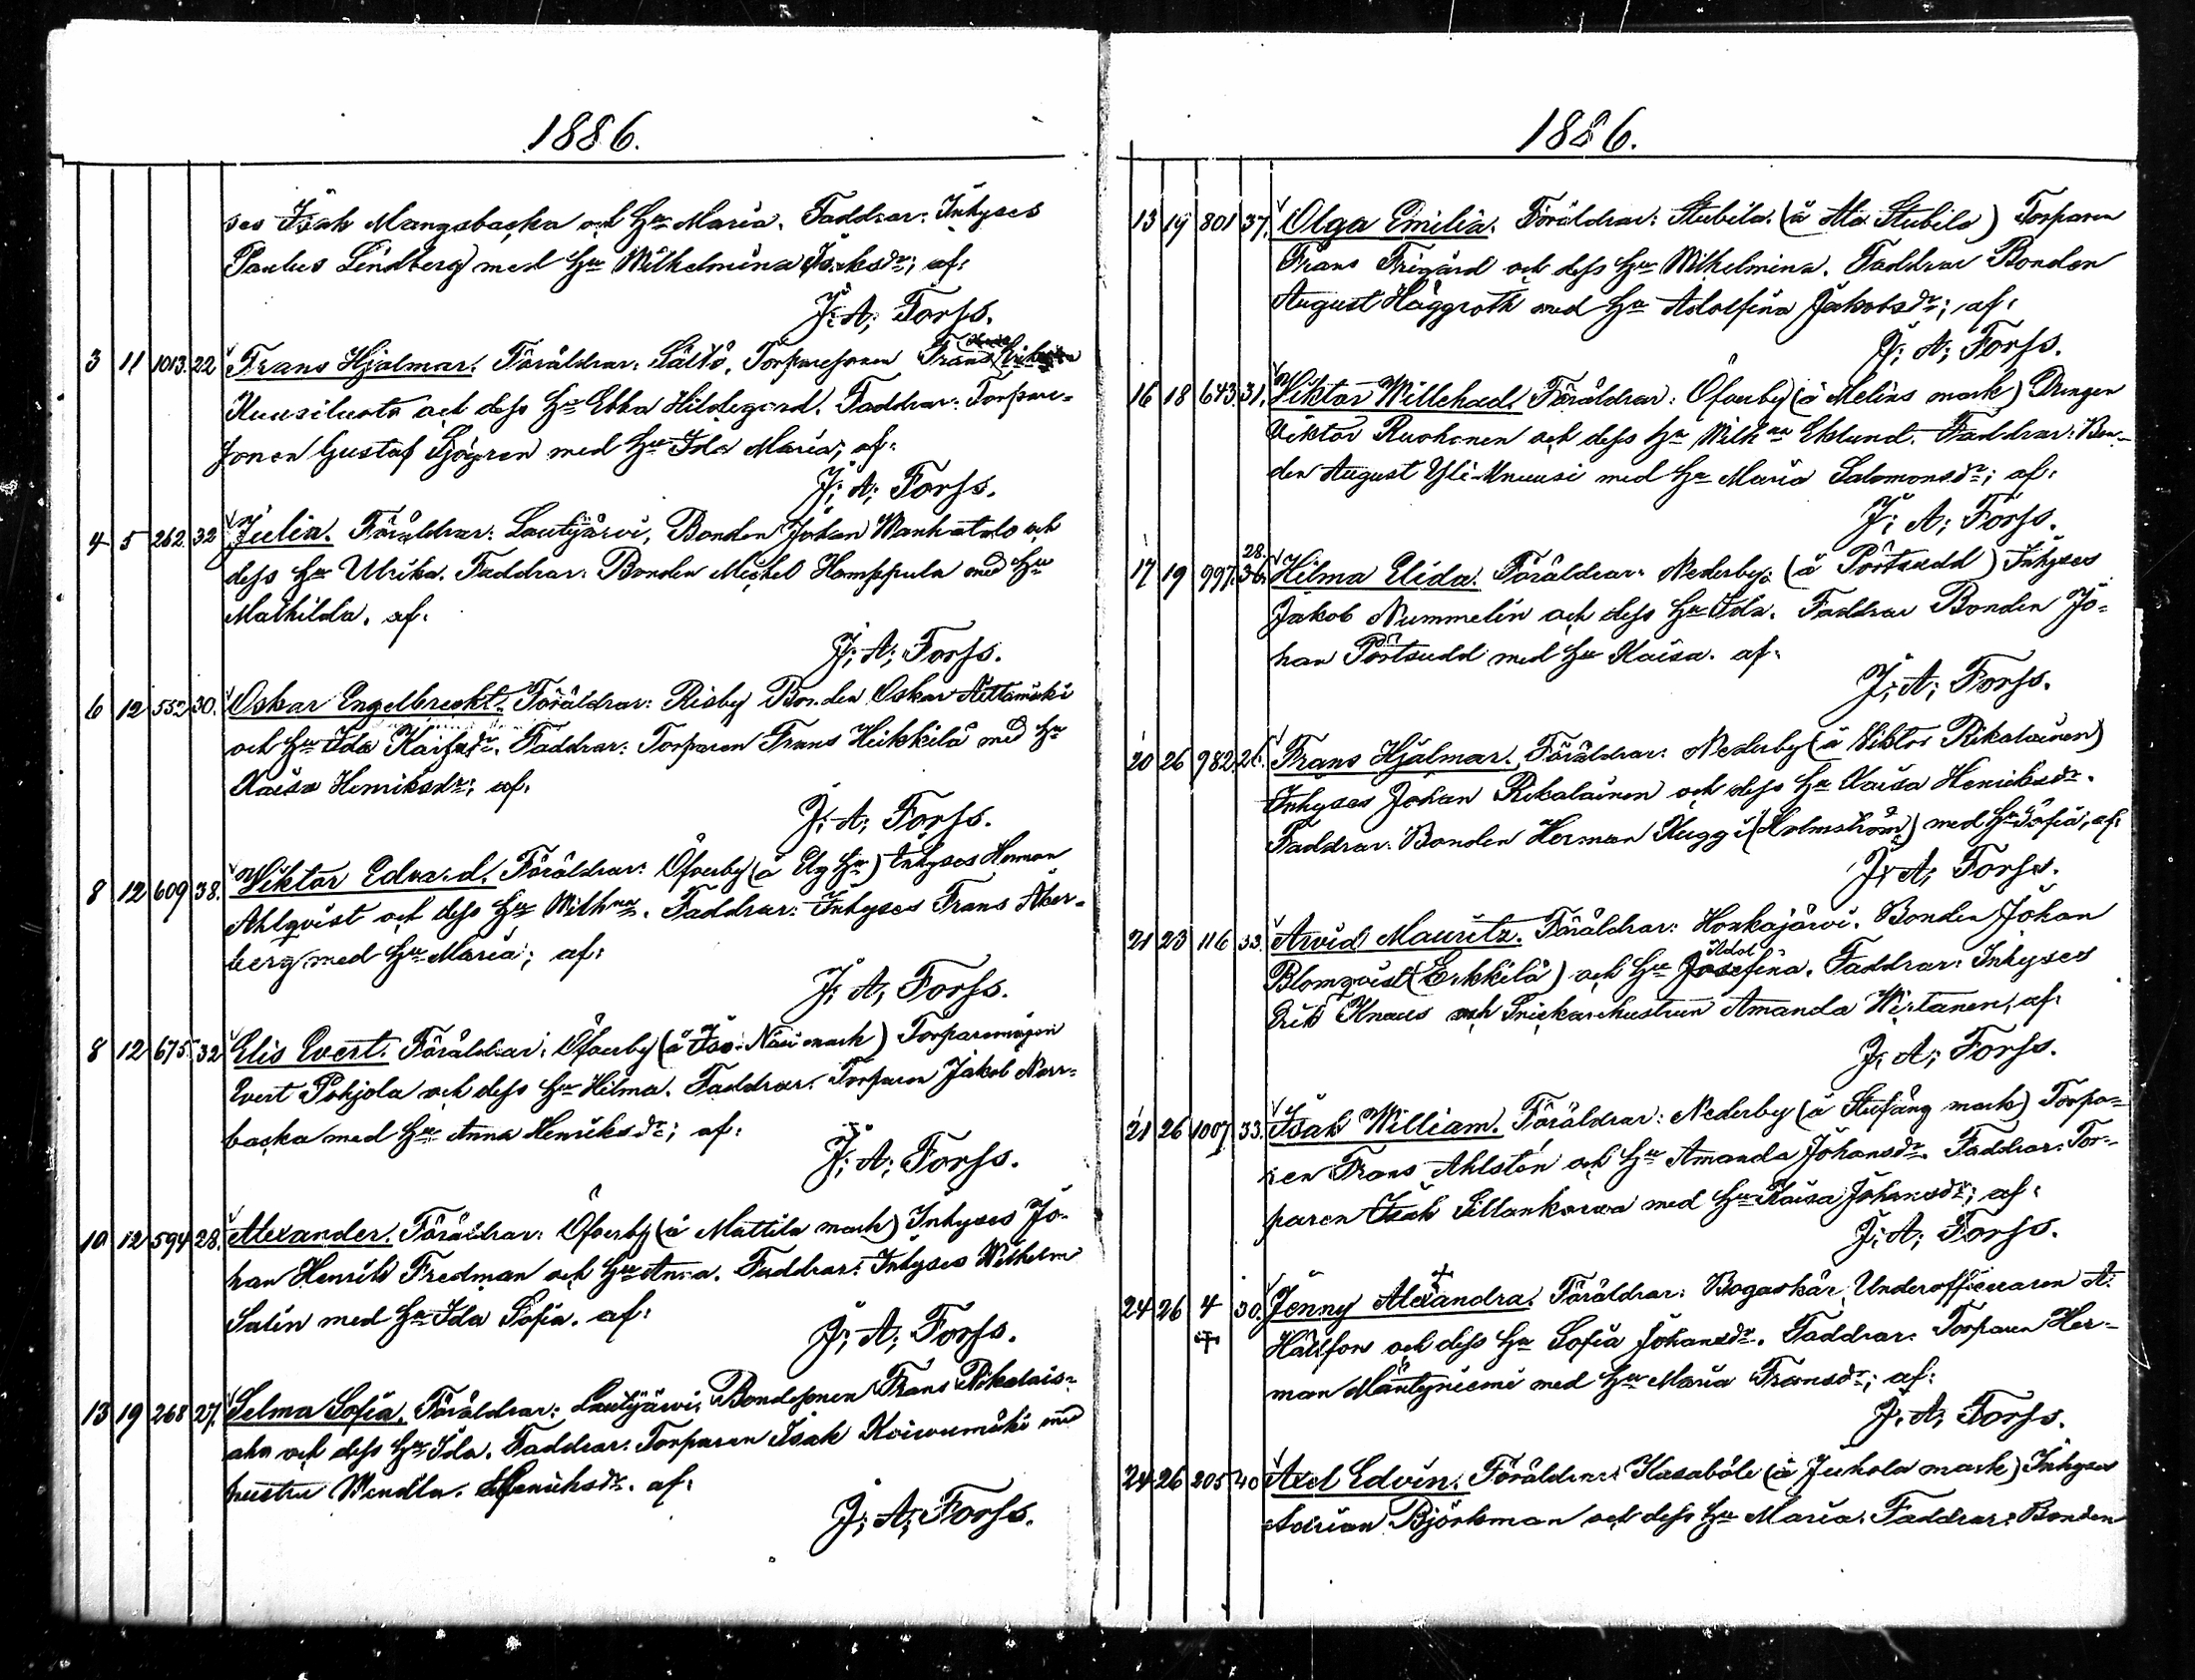 1886.
ses Isak Mangsbacka och Hu Maria. Faddrar: Inhyses
Paulus Lindberg med Hu Wilhelmina Isaksdr; af:
J. A. Forss.
3 11 1013. 22 Frans Hjalmar. Föräldrar: Sältö, Torparesonen Frans
Kuusiluoto och dess Hu Ebba Hildegard. Faddrar: Torpare-
sonen Gustaf Sjögren med Hu Ida Maria; af:
J. A. Forss.
4 5 262. 32 Julia. Föräldrar: Lautijärvi, Bonden Johan Wanhatalo och
dess Hu Ulrika. Faddrar: Bonden Mickel Hamppula med Hu
Mathilda. af:
J. A. Forss.
6 12 552 30. Oskar Engelbrekt. Föräldrar: Risby Bonden Oskar
och Hu Ida Faddrar: Torparen Frans Heikkilä med Hu
Kaisa Henriksdr; af:
J. A. Forss.
8 12 609 38. Wiktor Edvard. Föräldrar: Öfverby (å Elg Hu) Inhyses Herman
Ahlqvist och dess Hu Wilhna. Faddrar: Inhyses Frans Åker-
berg med Hu Maria; af:
J. A. Forss.
8 12 675. 32 Elis Evert. Föräldrar: Öfverby (å Iso-Näsi mark) Torparemågen
Evert Pohjola och dess Hu Hilma. Faddrar: Torparen Jakob Norr-
backa med Hu Anna Henriksdr; af:
J. A. Forss.
10 12 594 28. Alexander. Föräldrar: Öfverby (å Mattila mark) Inhyses Jo-
han Henrik Fredman och Hu Anna. Faddrar: Inhyses Wilhelm
Salin med Hu Ida Sofia. af:
J. A. Forss.
13 19 268 27. Selma Sofia. Föräldrar: Lautijärvi, Bondesonen Frans Pikalais-
aho och dess Hu Ida. Faddrar: Torparen Isak Koivumäki med
hustru Wendla. Henriksdr. af:
J. A. Forss.
1886.
13 19 801 37. Olga Emilia. Föräldrar: Stubila. (å Ala Stubila) Torparen
Frans Frigård och dess Hu Wilhelmina. Faddrar Bonden
August Häggroth med Hu Adolfina Jakobsdr; af:
J. A. Forss.
16 18 643. 31. Wiktor Willehad. Föräldrar: Öfverby (å Melins mark) Drengen
Viktor Ruohonen och dess Hu Wilhna Eklund. Faddrar: Bon-
den August Yli-Knuusi med Hu Maria Salomonsdr; af:
J. A. Forss.
28.
17 19 997. 36. Hilma Elida. Föräldrar: Nederby: (å Pörtsudd) Inhyses
Jakob Nummelin och dess Hu Ida. Faddrar Bonden Jo-
han Pörtsudd med Hu Kaisa. af:
J. A. Forss.
20 26 982. 26. Frans Hjalmar. Föräldrar: Nederby (å Viktor Rikalainen)
Inhyses Johan Rikalainen och dess Hu Kaisa Henriksdr.
Faddrar: Bonden Herman Kuggi (Holmström) med Hu Sofia, af:
J. A. Forss.
21 23 116 33. Arvid Mauritz. Föräldrar: Honkajärvi. Bonden Johan
Blomqvist (Erkkilä) och Hu Josefina. Faddrar: Inhyses
Erik Knaus och Snickarehustrun Amanda Wirtanen; af:
J. A. Forss.
21 26 1007 33. Isak William. Föräldrar: Nederby (å Stufäng mark) Torpa-
ren Frans Ahlstén och Hu Amanda Johansdr. Faddrar: Tor-
paren Isak Sillankorva med Hu Kaisa Johansdr; af:
J. A. Forss.
24 26 4 30. Jenny Alexandra. Föräldrar: Bogaskär, Underofficeraren A.
Hällfors och dess Hu Sofia Johansdr. Faddrar: Torparen Her-
man Mäntyniemi med Hu Maria Fransdr; af:
J. A. Forss.
24 26 205 40. Axel Edvin. Föräldrar: Kasaböle (å Juhola mark) Inhyses
Adrian Björkman och dess Hu Maria. Faddrar: Bonden